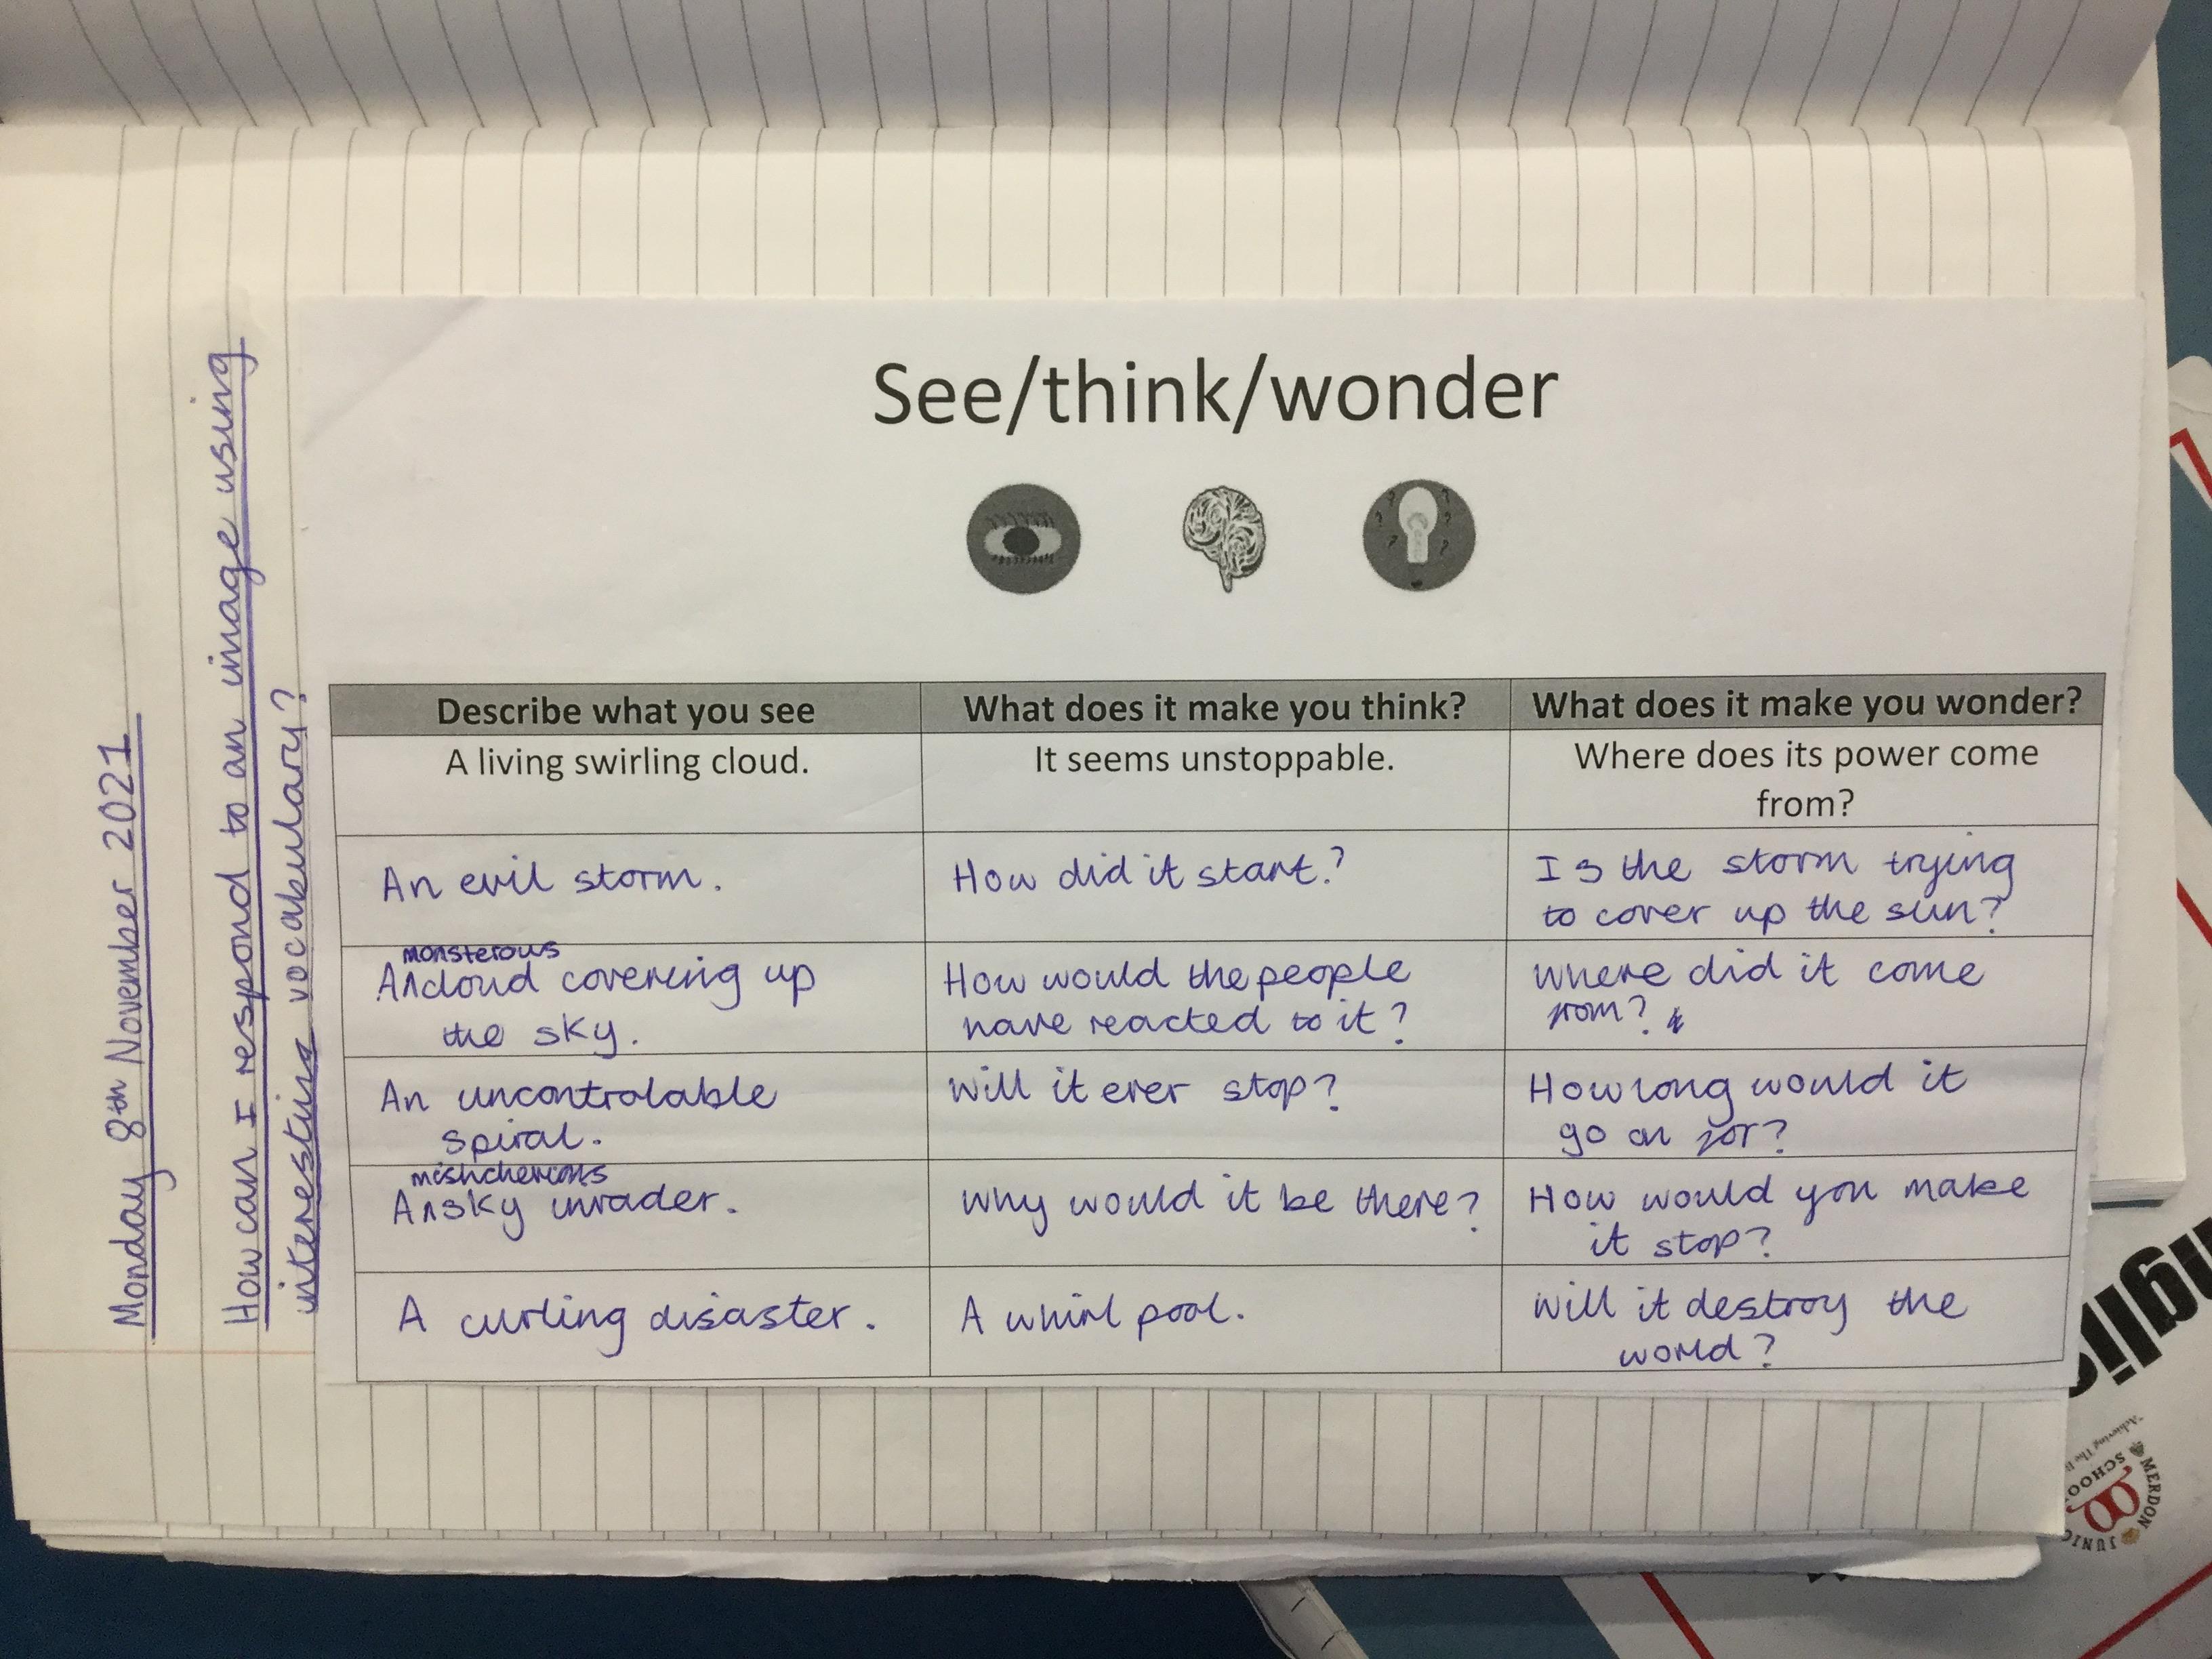 Monday 8th November 2021
How can I respond to an image using
interesting vocabulary?
See/think/wonder
Describe what you see
What does it make you think?
What does it make you wonder?
A living swirling cloud.
It seems unstoppable.
Where does its power come
from?
An evil storm.
How did it start?
Is the storm trying
to cover up the sun?
monsterous
A cloud covering up
the sky.
How would the people
have reacted to it?
Where did it come
from?
An uncontrolable
spiral.
Will it ever stop?
How long would it
go on for?
A sky invader.
Why would it be there?
How would you make
it stop?
A curling disaster.
A whirl pool.
Will it destroy the
world?
MERDON
JUNIO
SCHOO